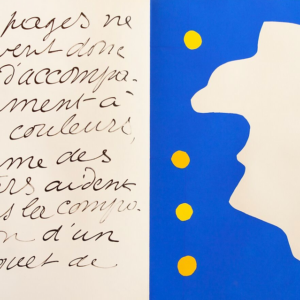 pages ne
vent donc
d'accompa-
ment à
couleurs,
me des
ers aident
s la compo-
on d'un
quet de